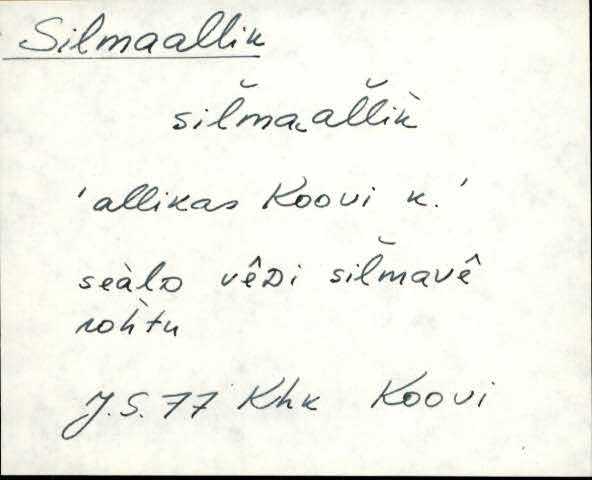 Silmaallik
sil̆maal̆lik̀
'allikas Koovi k.'
seàlᴅ vêᴅi sil̆mavê
roh̀tu
J.S. 77 Khk Koovi